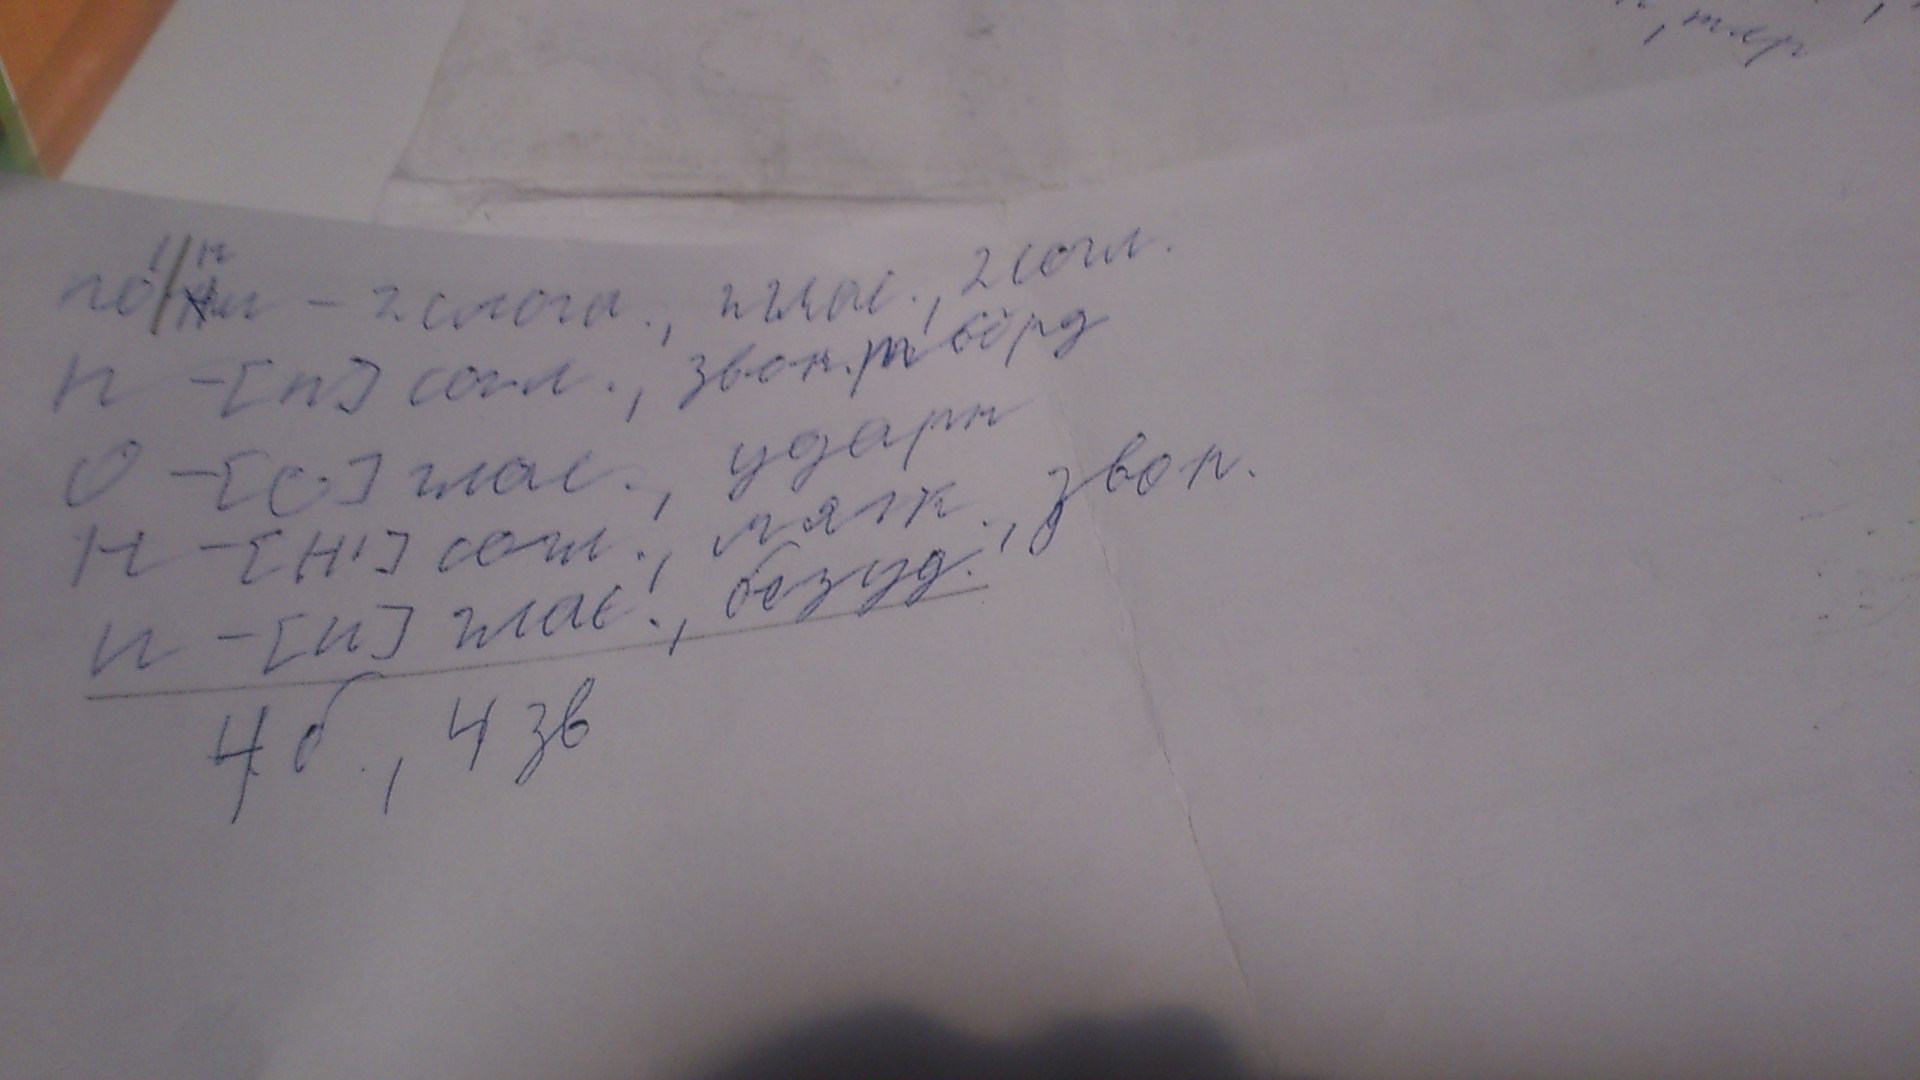 , твёр
по́/ни - 2 слога., 2 глас., 2 согл.
п - [п] согл., звон. твёрд
о - [о] глас., ударн
н - [н'] согл., мягк., звон.
и - [и] глас., безуд.
4 б., 4 зв